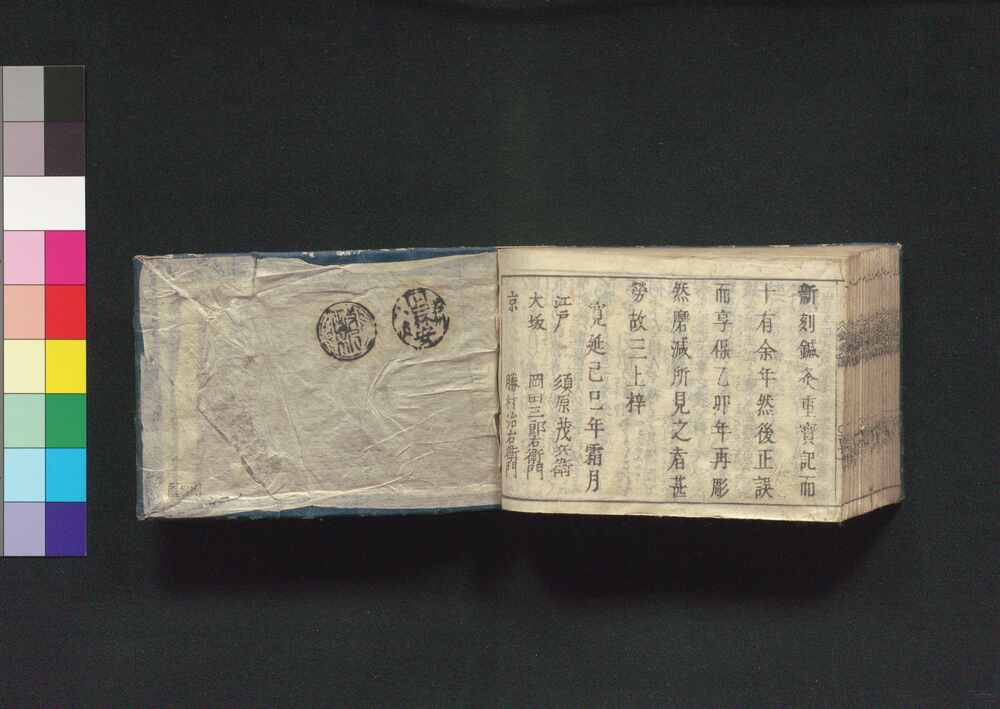 新刻鍼灸重寳記而
十有余年然後正誤
而享保乙卯年再彫
然磨滅所見之者甚
勞故三上梓
寛延己巳年霜月
江戸 須原茂兵衛
大坂 岡田三郎右衛門
京 勝村治右衛門